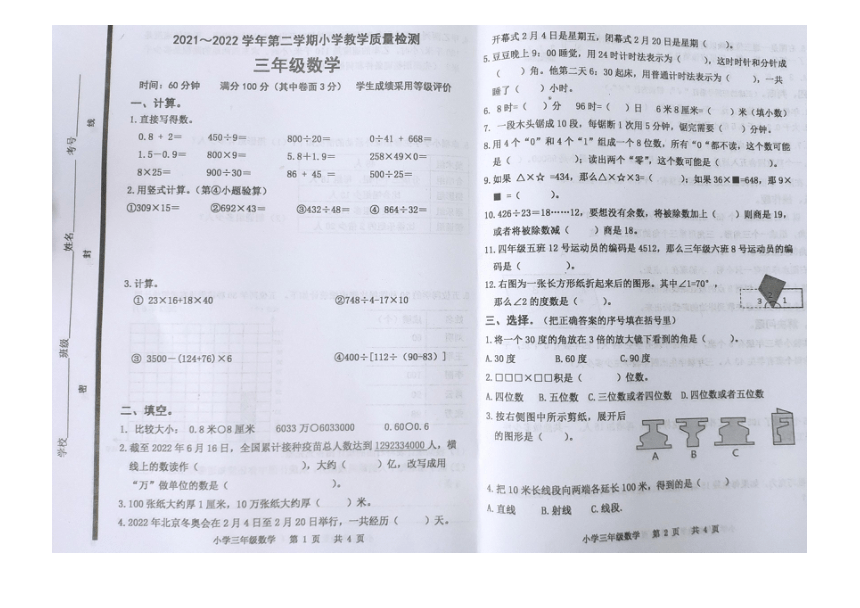 2021～2022 学年第二学期小学教学质量检测
三年级数学
时间：60 分钟 满分 100 分（其中卷面 3 分） 学生成绩采用等级评价
一、计算。
1. 直接写得数。
0.8 + 2＝ 450÷9＝ 800÷20＝ 0÷41 + 668＝
1.5－0.9＝ 800×9＝ 5.8＋1.9＝ 258×49×0＝
8×25＝ 900÷30＝ 86 + 45 ＝ 500÷25＝
2. 用竖式计算。（第④小题验算）
①309×15＝ ②692×43＝ ③432÷48＝ ④ 864÷32＝
3. 计算。
① 23×16+18×40 ②748÷4-17×10
③ 3500－(124+76)×6 ④400÷[112÷（90-83）]
二、填空。
1. 比较大小： 0.8 米○8 厘米 6033 万○6033000 0.60○0.6
2. 截至 2022 年 6 月 16 日，全国累计接种疫苗总人数达到 1292334000 人，横
线上的数读作（ ），大约（ ）亿，改写成用
“万”做单位的数是（ ）。
3. 100 张纸大约厚 1 厘米，10 万张纸大约厚（ ）米。
4. 2022 年北京冬奥会在 2 月 4 日至 2 月 20 日举行，一共经历（ ）天。
小学三年级数学 第 1 页 共 4 页
学校
班级
姓名
考号
密
封
线
开幕式 2 月 4 日是星期五，闭幕式 2 月 20 日是星期（ ）。
5. 豆豆晚上 9：00 睡觉，用 24 时计时法表示为（ ），这时时针和分针成
（ ）角。他第二天 6：30 起床，用普通计时法表示为（ ），一共
睡了（ ）小时。
6. 8 时=（ ）分 96 时=（ ）日 6 米 8 厘米=（ ）米（填小数）
7. 一段木头锯成 10 段，每锯断 1 次用 5 分钟，锯完需要（ ）分钟。
8. 用 4 个“0”和 4 个“1”组成一个 8 位数，所有“0“都不读，这个数可能
是（ ）；读出两个“零”，这个数可能是（ ）。
9. 如果 △×☆ =434，那么△×☆×3=（ ）；如果 36×■=648，那 9×
■ =（ ）。
10. 426÷23＝18……12，要想没有余数，将被除数加上（ ）则商是 19，
或者将被除数减（ ）商是 18。
11. 四年级五班 12 号运动员的编码是 4512，那么三年级六班 8 号运动员的编
码是（ ）。
12. 右图为一张长方形纸折起来后的图形。其中∠1=70°，
那么∠2 的度数是（ ）。
3 2 1
三、选择。（把正确答案的序号填在括号里）
1. 将一个 30 度的角放在 3 倍的放大镜下看到的角是（ ）。
A. 30 度 B. 60 度 C. 90 度
2. □□□×□□积是（ ）位数。
A. 四位数 B. 五位数 C. 三位数或者四位数 D. 四位数或者五位数
3. 按右侧图中所示剪纸，展开后
的图形是（ ）。
A B C
4. 把 10 米长线段向两端各延长 100 米，得到的是（ ）
A. 直线 B. 射线 C. 线段.
小学三年级数学 第 2 页 共 4 页